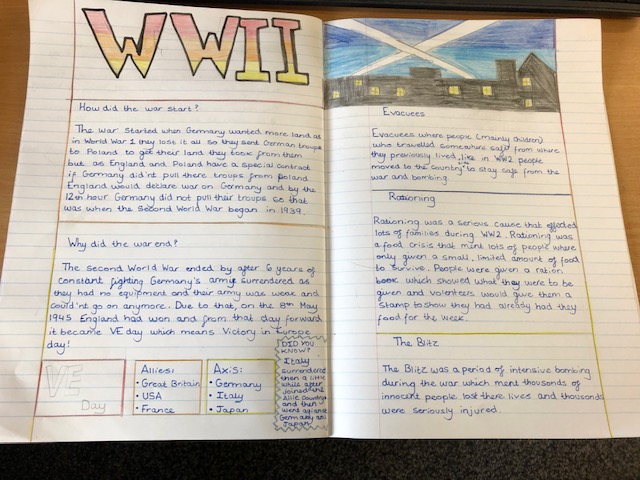 WWII
How did the war start?
The war started when Germany wanted more land as
in World War 1 they lost it all so they sent German troups
to Poland to get their land they took from them
but as England and Poland have a special contract
if Germany did'nt pull there troups from poland
England would declare war on Germany and by the
12th hour Germany did not pull their troups so that
was when the Second World War began in 1939.
Why did the war end?
The second World War ended by after 6 years of
constant fighting Germany's army surrendered as
they had no equipment and their army was weak and
could'nt go on anymore. Due to that, on the 8th May
1945 England had won and from that day forward
it became VE day which means Victory in Europe
day!
VE
Day
Allies:
• Great Britain
• USA
• France
Axis:
• Germany
• Italy
• Japan
DID YOU
KNOW?
Italy
surrendered
then a little
while after
joined the
Allie countries
and then
went against
Germany and
Japan
Evacuees
Evacuees where people (mainly children)
who travelled somewhere safe from where
they previously lived, like in WW2 people
moved to the country to stay safe from the
war and bombing
Rationing
Rationing was a serious cause that effected
lots of families during WW2. Rationing was
a food crisis that ment lots of people where
only given a small, limited amount of food
to survive. People were given a ration
book which showed what they were to be
given and volenteers would give them a
stamp to show they had already had they
food for the week.
The Blitz
The Blitz was a period of intensive bombing
during the war which ment thousands of
innocent people lost there lives and thousands
were seriously injured.